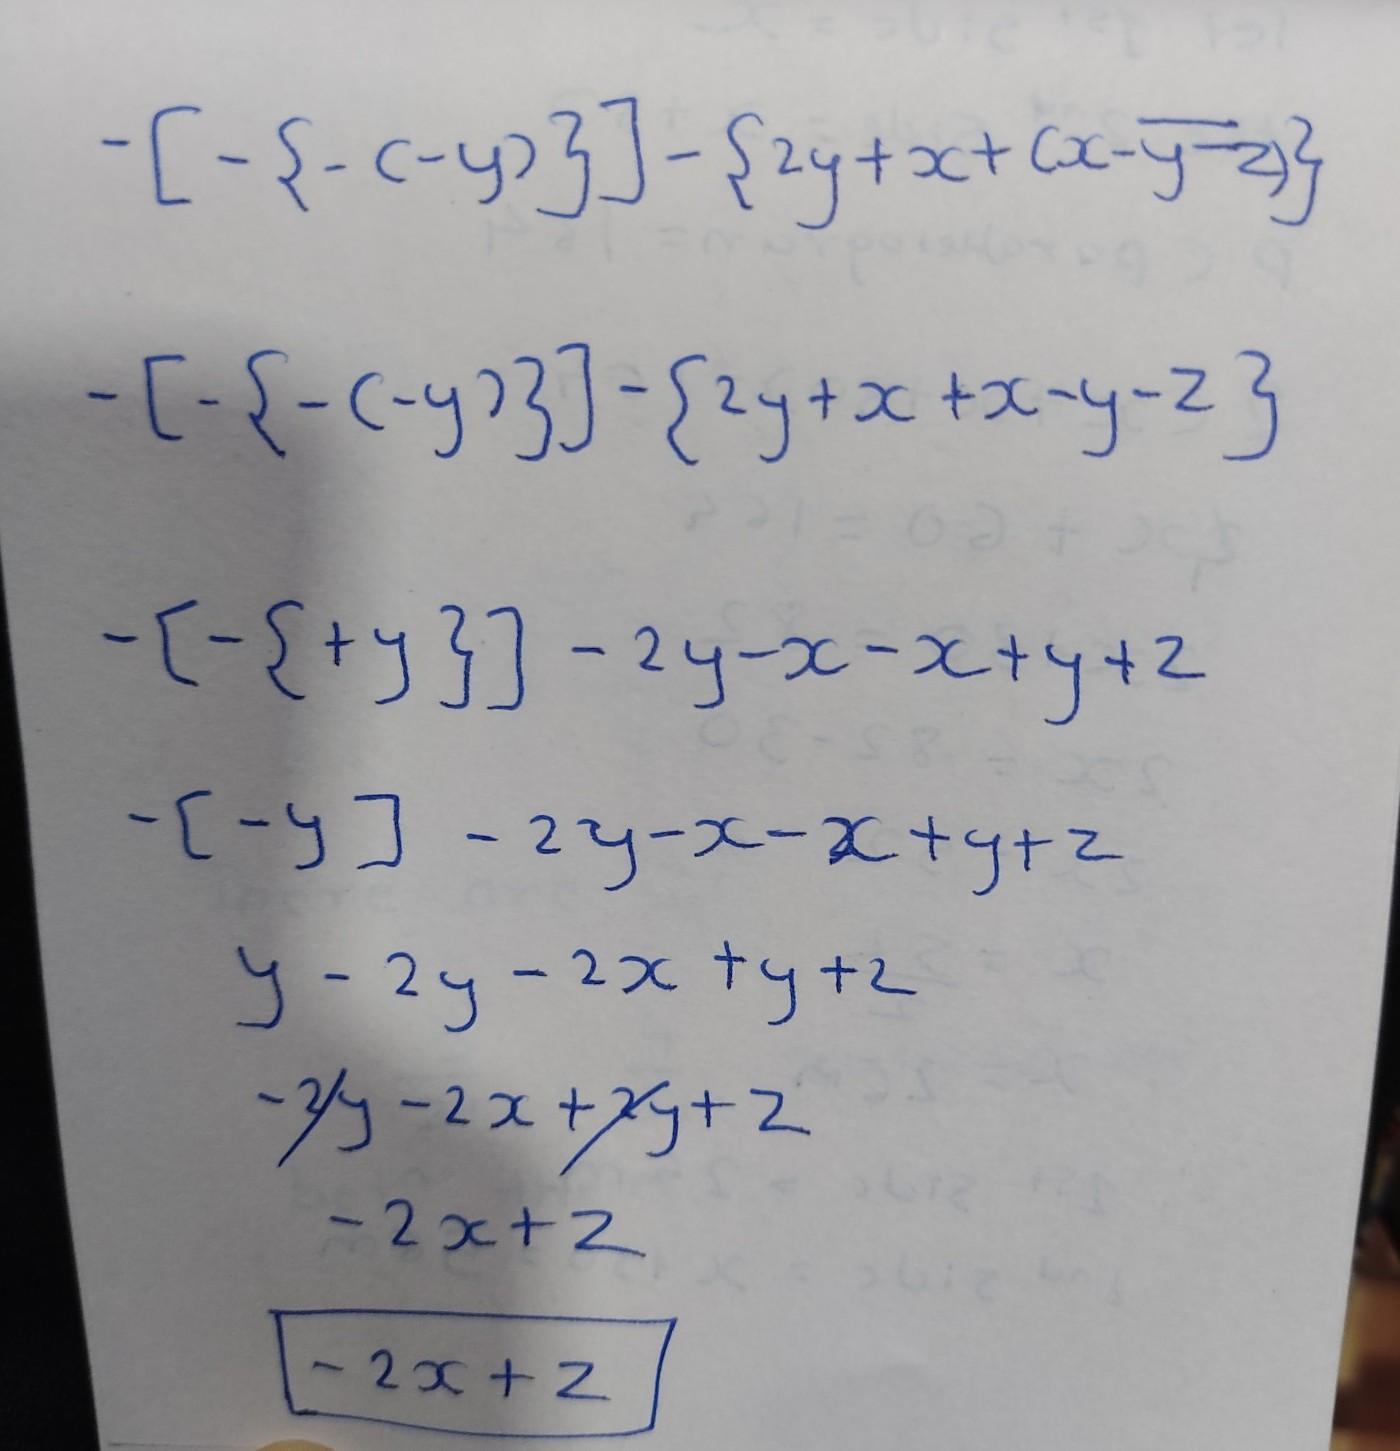 -[-{-(-y)}]-{2y+x+(x-y̅-̅z̅)}
-[-{-(-y)}]-{2y+x+x-y-z}
-[-{+y}]-2y-x-x+y+z
-[-y]-2y-x-x+y+z
y-2y-2x+y+z
-2y-2x+2y+z
-2x+z
-2x+z